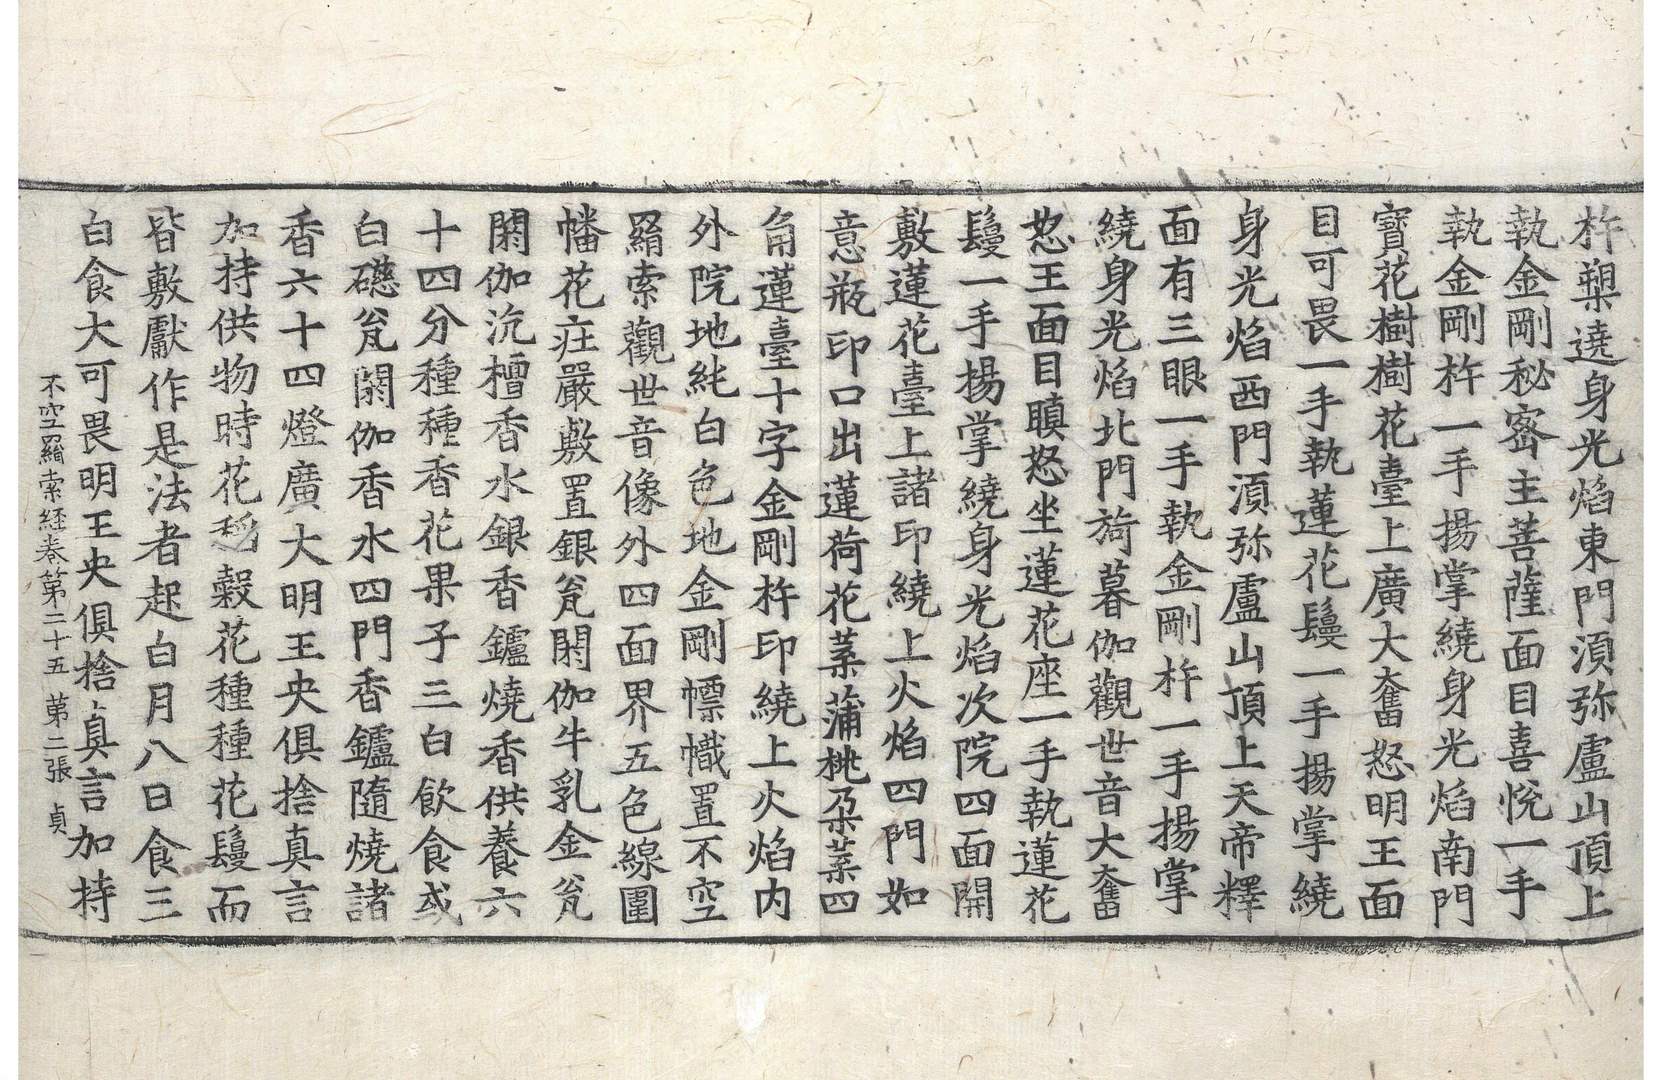 杵槊遶身光焰東門湏弥盧山頂上
執金剛秘密主菩薩面目喜恱一手
執金剛杵一手揚掌繞身光焰南門
寶花樹樹花臺上廣大奮怒明王面
目可畏一手執蓮花鬘一手揚掌繞
身光焰西門湏弥盧山頂上天帝釋
面有三眼一手執金剛杵一手揚掌
繞身光焰北門旖暮伽觀世音大奮
怒王面目瞋怒坐蓮花座一手執蓮花
鬘一手揚掌繞身光焰次院四面開
敷蓮花臺上諸印繞上火焰四門如
意瓶印口出蓮荷花葉蒲桃朶葉四
角蓮臺十字金剛杵印繞上火焰内
外院地純白色地金剛幖幟置不空
羂索觀世音像外四面界五色線圍
幡花莊嚴敷置銀瓮閼伽牛乳金瓮
閼伽沉檀香水銀香鑪燒香供養六
十四分種種香花果子三白飲食或
白礠瓮閼伽香水四門香鑪隨燒諸
香六十四燈廣大明王央俱捨真言
加持供物時花稻糓花種種花鬘而
皆敷獻作是法者起白月八日食三
白食大可畏明王央俱捨真言加持
不空羂索経卷第二十五 第二張 貞